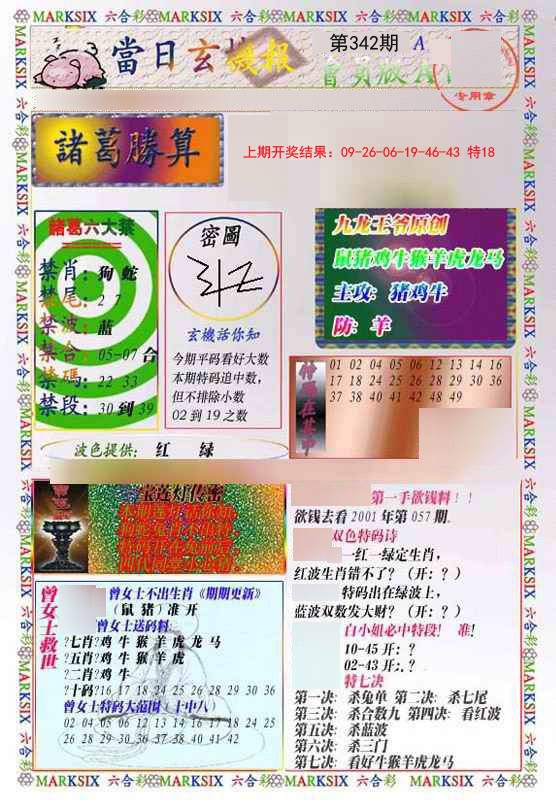 MARKSIX 六合彩 MARKSIX 六合彩 MARKSIX 六合彩 MARKSIX 六合彩
當日玄機報
第342期 A
會員版
专用章
諸葛勝算
上期开奖结果：09-26-06-19-46-43 特18
諸葛六大禁
禁肖：狗 蛇
禁尾：2 7
禁波：蓝
禁合：05-07 合
禁碼：22 33
禁段：30 到 39
密圖
玄機话你知
今期平码看好大数
本期特码追中数,
但不排除小数
02 到 19 之数
九龙王爷原创
鼠猪鸡牛猴羊虎龙马
主攻：猪鸡牛
防：羊
01 02 04 05 06 12 13 14 16
17 18 24 25 26 28 29 30 36
37 38 40 41 42 48 49
波色提供： 红 绿
宝莲灯传密
曾女士救世
曾女士不出生肖《期期更新》
(鼠 猪) 准 开
曾女士送码料
?七肖?鸡 牛 猴 羊 虎 龙 马
?五肖?鸡 牛 猴 羊 虎
?二肖?鸡 牛
?十码?16 17 18 24 25 26 28 29 30 36
曾女士特码大范围（十中八）
02 04 05 06 12 13 14 16 17 18 24 25
26 28 29 30 36 37 38 40 41 42
第一手欲钱料！！
欲钱去看 2001 年第 057 期.
双色特码诗
一红一绿定生肖,
红波生肖错不了？（开：？）
特码出在绿波上,
蓝波双数发大财？（开：？）
白小姐必中特段！ 准！
10-45 开：？
02-43 开：？
特七决
第一决：杀兔单 第二决：杀七尾
第三决：杀合数九 第四决：看红波
第五决：杀蓝波
第六决：杀三门
第七决：看好牛猴羊虎龙马
MARKSIX 六合彩 MARKSIX 六合彩 MARKSIX 六合彩 MARKSIX 六合彩